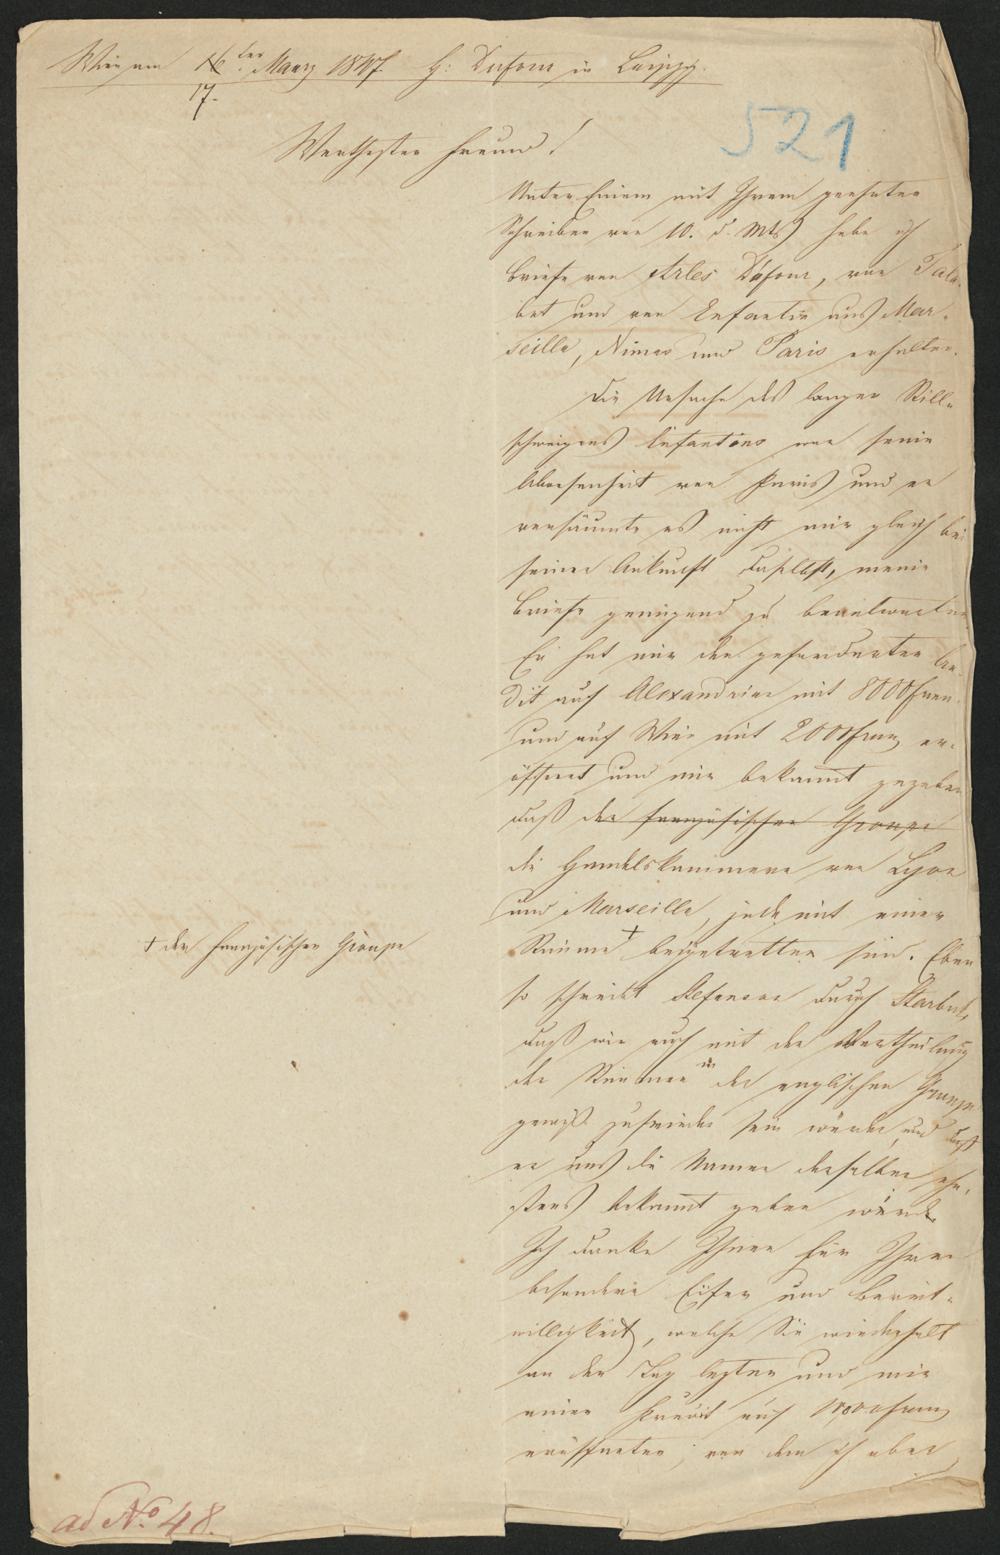 Wien am 16 ten Maerz 1847. H: Dufour in Leipzig.
17.
521
Werthester Freund!
Unter Einem mit Ihrem geehrten
Schreiben vom 10. d. Mts habe ich
Briefe von Arles Dufour, von Tala-
bot und von Enfantin aus Mar-
seille, Nimes und Paris erhalten.
Die Ursache des langen Still-
schweigens Enfantins war seine
Abwesenheit von Paris und er
versäumte es nicht mir gleich bei
seiner Ankunft daselbst, meine
Briefe genügend zu beantworten.
Er hat mir den geforderten Cre-
dit auf Alexandrien mit 8000 Fran
und auf Wien mit 2000 Fran er-
öffnet und mir bekannt gegeben
daß der französischen Groupe
die Handelskammern von Lyon
und Marseille, jede mit einer
Stimme + beigetretten sind. Eben
+ der französischen Groupe
so schreibt Stefenson durch Starbuk,
daß wir auch mit der Vertheilung
der Stimmen in der englischen Groupe
gewiß zufrieden sein würden, und daß
er uns die Namen derselben eh-
stens bekannt geben würde
Ich danke Ihnen für Ihren
besondern Eifer und Bereit-
willigkeit, welche Sie wiederholt
an den Tag legten und mir
einen Credit auf Fran
eröffneten, von dem ich aber
ad No. 48.